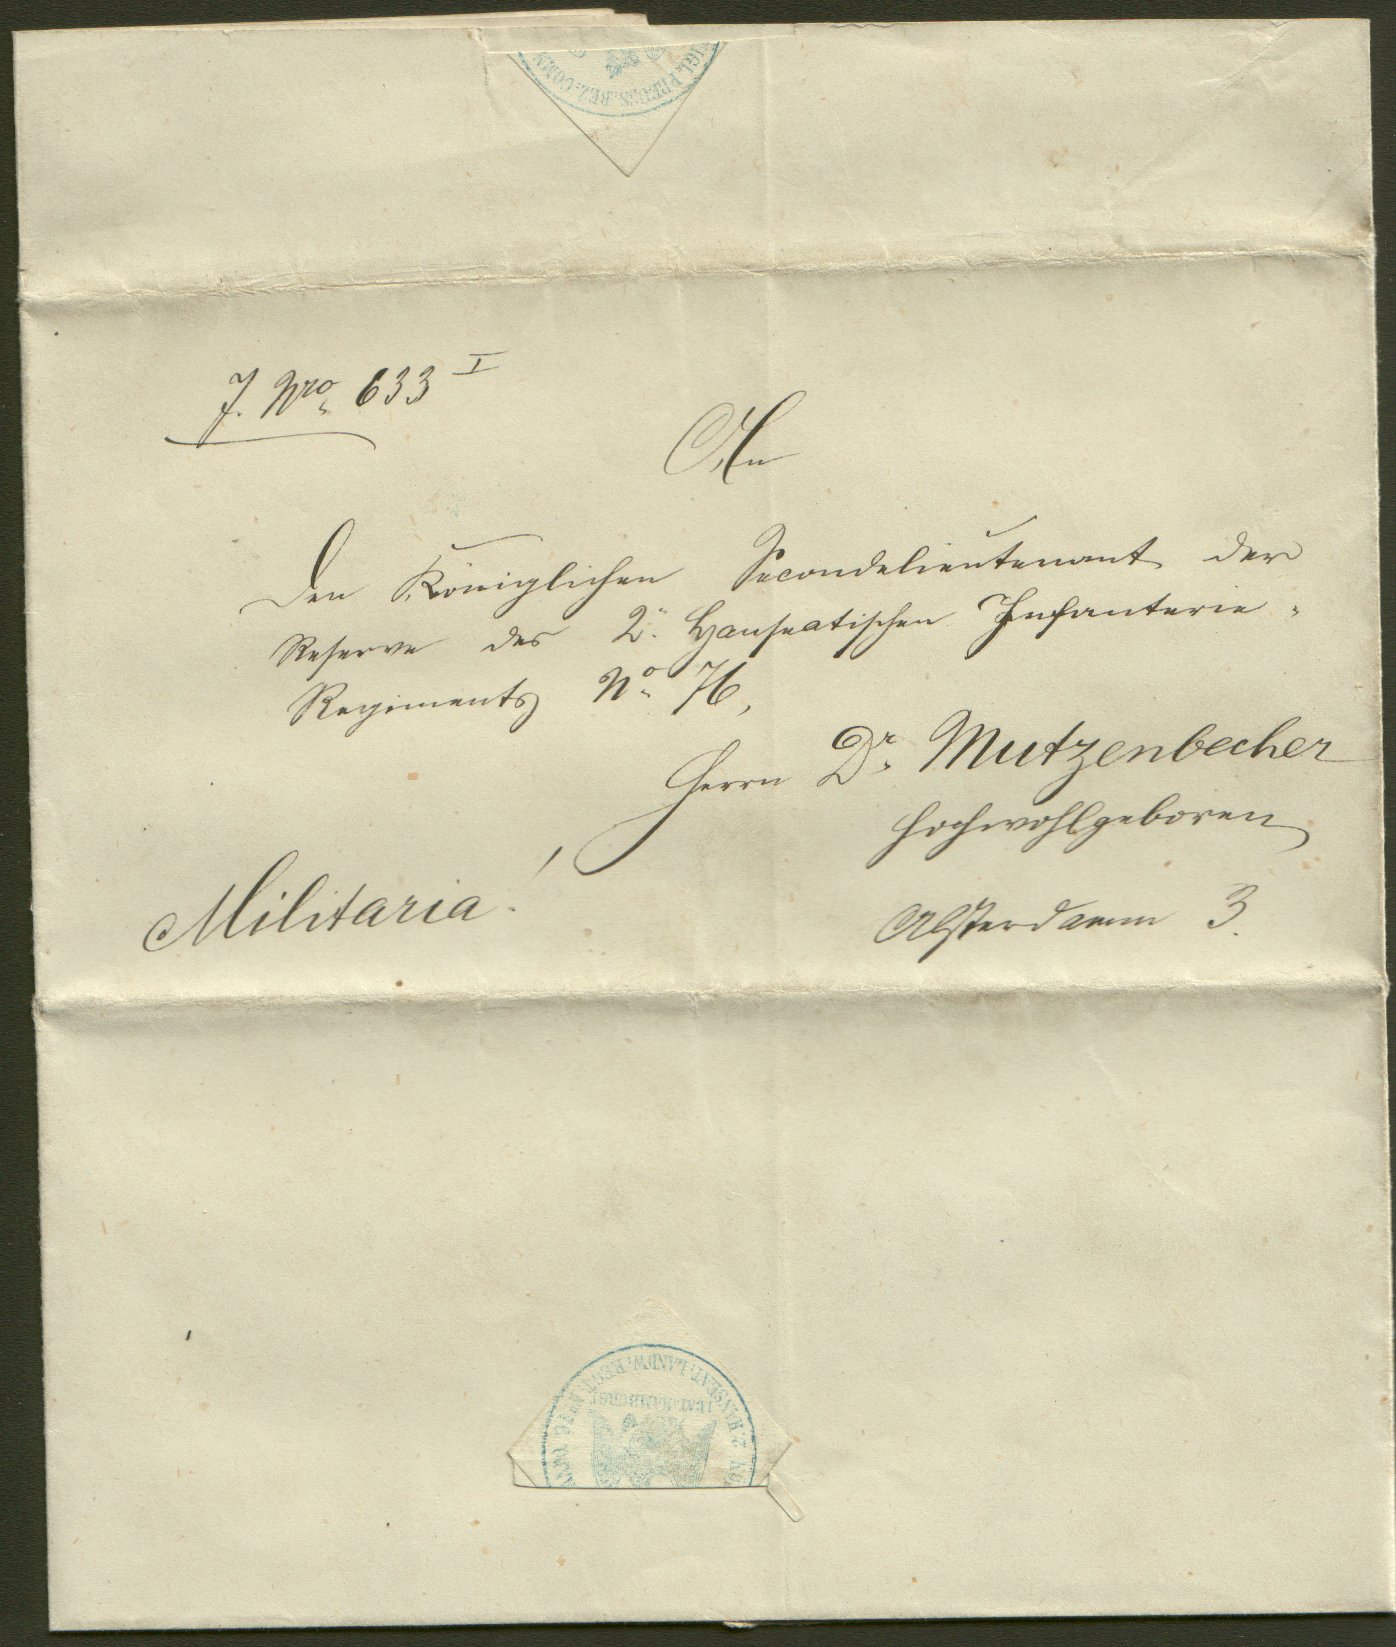 KÖNIGL. PREUSS. BEZ. COMM
J. Nro. 633 I
An
Den Königlichen Secondelieutenant der
Reserve des 2. Hanseatischen Infanterie-
Regiments No. 76,
Herrn Dr. Mutzenbecher
Hochwohlgeboren
Militaria!
Alsterdamm 3.
HANSEAT. LANDW. REGT. No 76